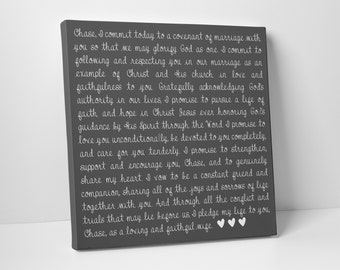 Chase, I commit today to a covenant of marriage with
you so that we may glorify God as one. I commit to
following and respecting you in our marriage as an
example of Christ and His church in love and
faithfulness to you. Gratefully acknowledging God's
authority in our lives I promise to pursue a life of
faith and hope in Christ Jesus ever honoring God's
guidance by His Spirit through the Word. I promise to
love you unconditionally, be devoted to you completely,
and care for you tenderly. I promise to strengthen,
support and encourage you, Chase, and to genuinely
share my heart. I vow to be a constant friend and
companion, sharing all of the joys and sorrows of life
together with you. And through all the conflict and
trials that may lie before us I pledge my life to you,
Chase, as a loving and faithful wife.